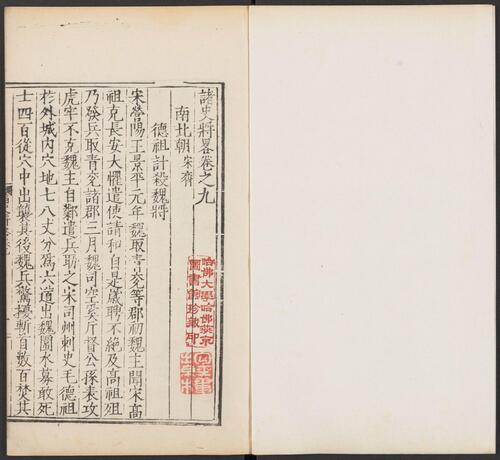 諸史將畧卷之九
南北朝 宋齊
德祖計殺魏將
宋營陽王景平元年魏取青兗等郡初魏主聞宋高
祖克長安大懼遣使請和自是歲聘不絕及高祖殂
乃發兵取青兗諸郡三月魏司空奚斤督公孫表攻
虎牢不克魏主自鄴遣兵助之宋司州刺史毛德祖
於外城內穴地七八丈分為六道出魏圍外募敢死
士四百從穴中出襲其後魏兵驚擾斬首數百焚其
哈佛大學哈佛燕京
圖書館珍藏印